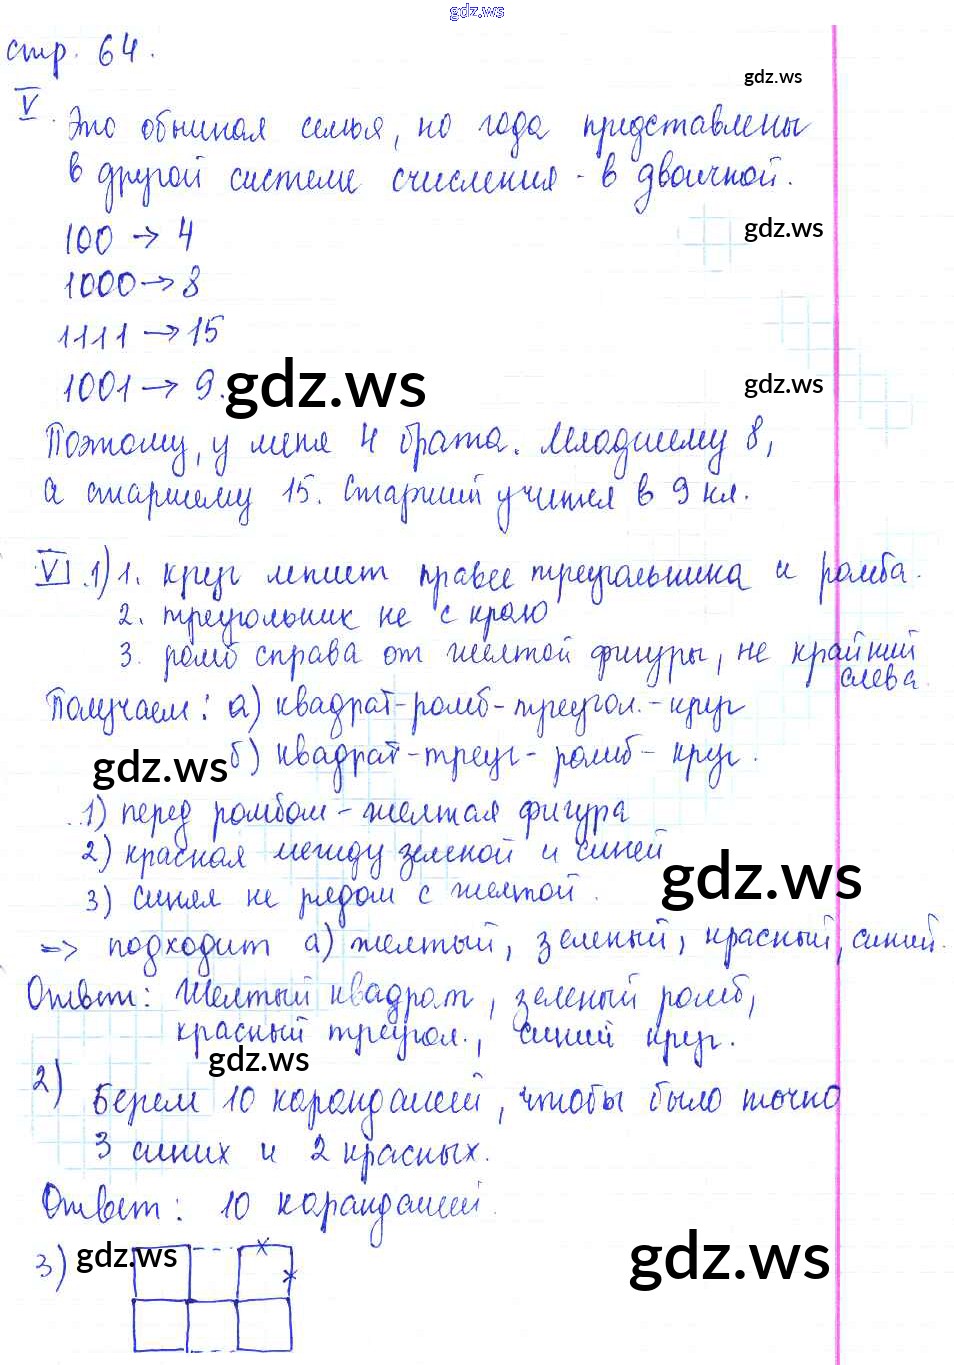 gdz.ws
стр. 64.
gdz.ws
V. Это обычная семья, но года представлены
в другой системе счисления - в двоичной.
100 → 4
gdz.ws
1000 → 8
1111 → 15
1001 → 9.
gdz.ws
gdz.ws
Поэтому, у меня 4 брата. Младшему 8,
а старшему 15. Старший учится в 9 кл.
VI .1) 1. круг лежит правее треугольника и ромба.
2. треугольник не с краю
3. ромб справа от желтой фигуры, не крайний
слева.
Получаем: а) квадрат-ромб-треугол.-круг
б) квадрат-треуг-ромб-круг.
gdz.ws
1) перед ромбом - желтая фигура
2) красная между зеленой и синей
gdz.ws
3) синяя не рядом с желтой.
=> подходит а) желтый, зеленый, красный, синий.
Ответ: Желтый квадрат, зеленый ромб,
красный треугол., синий круг.
gdz.ws
2) Берем 10 карандашей, чтобы было точно
3 синих и 2 красных.
Ответ: 10 карандашей.
3)
gdz.ws
gdz.ws